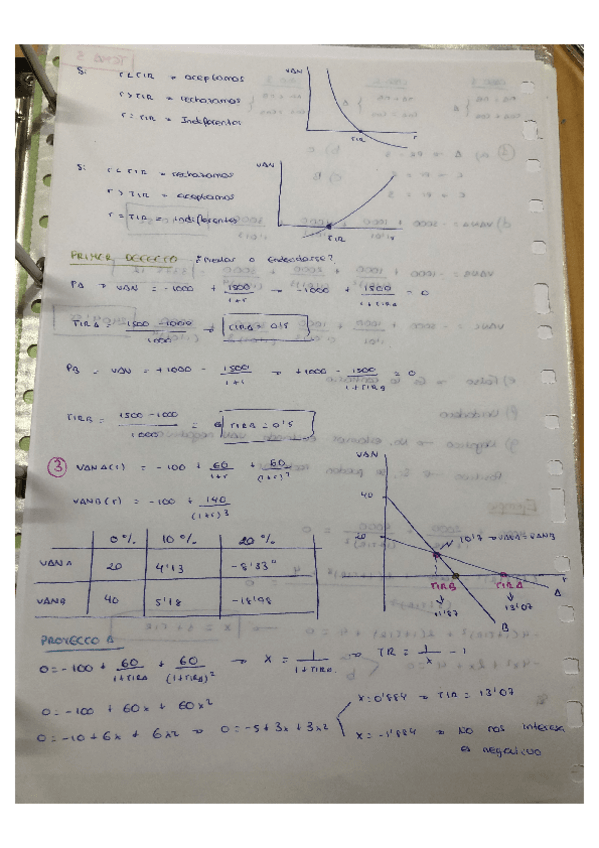 TEMA 3
Si r < TIR → aceptamos
r > TIR → rechazamos
r = TIR → Indiferentes
VAN
TIR
r
Si r < TIR → rechazamos
r > TIR → aceptamos
r = TIR → indiferentes
VAN
TIR
r
PRIMER DEFECTO ¿Prestar o endeudarse?
PA → VAN = -1000 + 1500/(1+r) → -1000 + 1500/(1+TIRA) = 0
TIRA = (1500 - 1000)/1000 → TIRA = 0'5
PB → VAN = +1000 - 1500/(1+r) → +1000 - 1500/(1+TIRB) = 0
TIRB = (1500 - 1000)/1000 = TIRB = 0'5
③ VANA(r) = -100 + 60/(1+r) + 60/(1+r)²
VANB(r) = -100 + 140/(1+r)³
0% 10% 20%
VANA 20 4'13 -8'33
VANB 40 5'18 -18'98
VAN
40
20
10'7 → VANA = VANB
TIRB TIRA
11'87 13'07
r
A
B
PROYECTO A
0 = -100 + 60/(1+TIRA) + 60/(1+TIRA)² → X = 1/(1+TIRA) → TIR = 1/x - 1
0 = -100 + 60x + 60x²
0 = -10 + 6x + 6x² → 0 = -5 + 3x + 3x²
x = 0'884 → TIR = 13'07
x = -1'884 → No nos interesa
es negativo